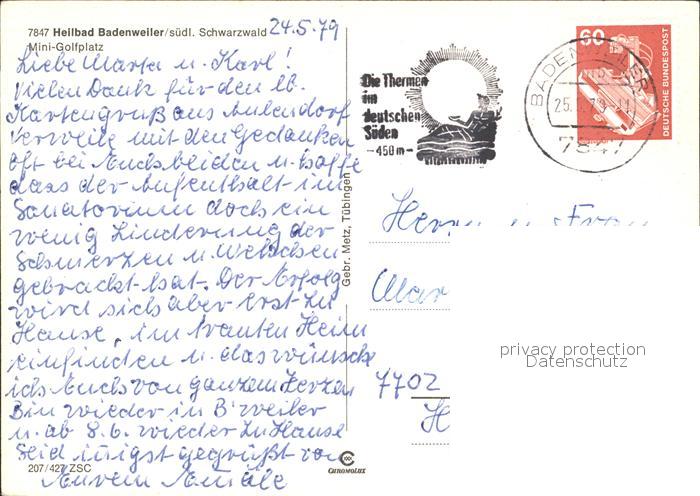 7847 Heilbad Badenweiler/südl. Schwarzwald 24.5.79
Mini-Golfplatz
Liebe Marta u. Karl!
Vielen Dank für den lb.
Kartengruß aus Aulendorf
Verweile mit den Gedanken
oft bei Euch beiden u. hoffe
dass der Aufenthalt im
Sanatorium doch ein
wenig Linderung der
Schmerzen u. Wehchen
gebracht hat. Der Erfolg
wird sich aber erst zu
Hause, im trauten Heim
einfinden u. das wünsche
ich Euch von ganzem Herzen
Bin wieder in B'weiler
u. ab 8.6. wieder zu Hause
Seid innigst gegrüßt von
Eurem
207/427 ZSC
Gebr. Metz, Tübingen
CHROMOLUX
Die Thermen
im
deutschen
Süden
- 450 m -
BADENWEILER
25. 79
7847
60
DEUTSCHE BUNDESPOST
Herrn u. Frau
Mar
7702
privacy protection
Datenschutz